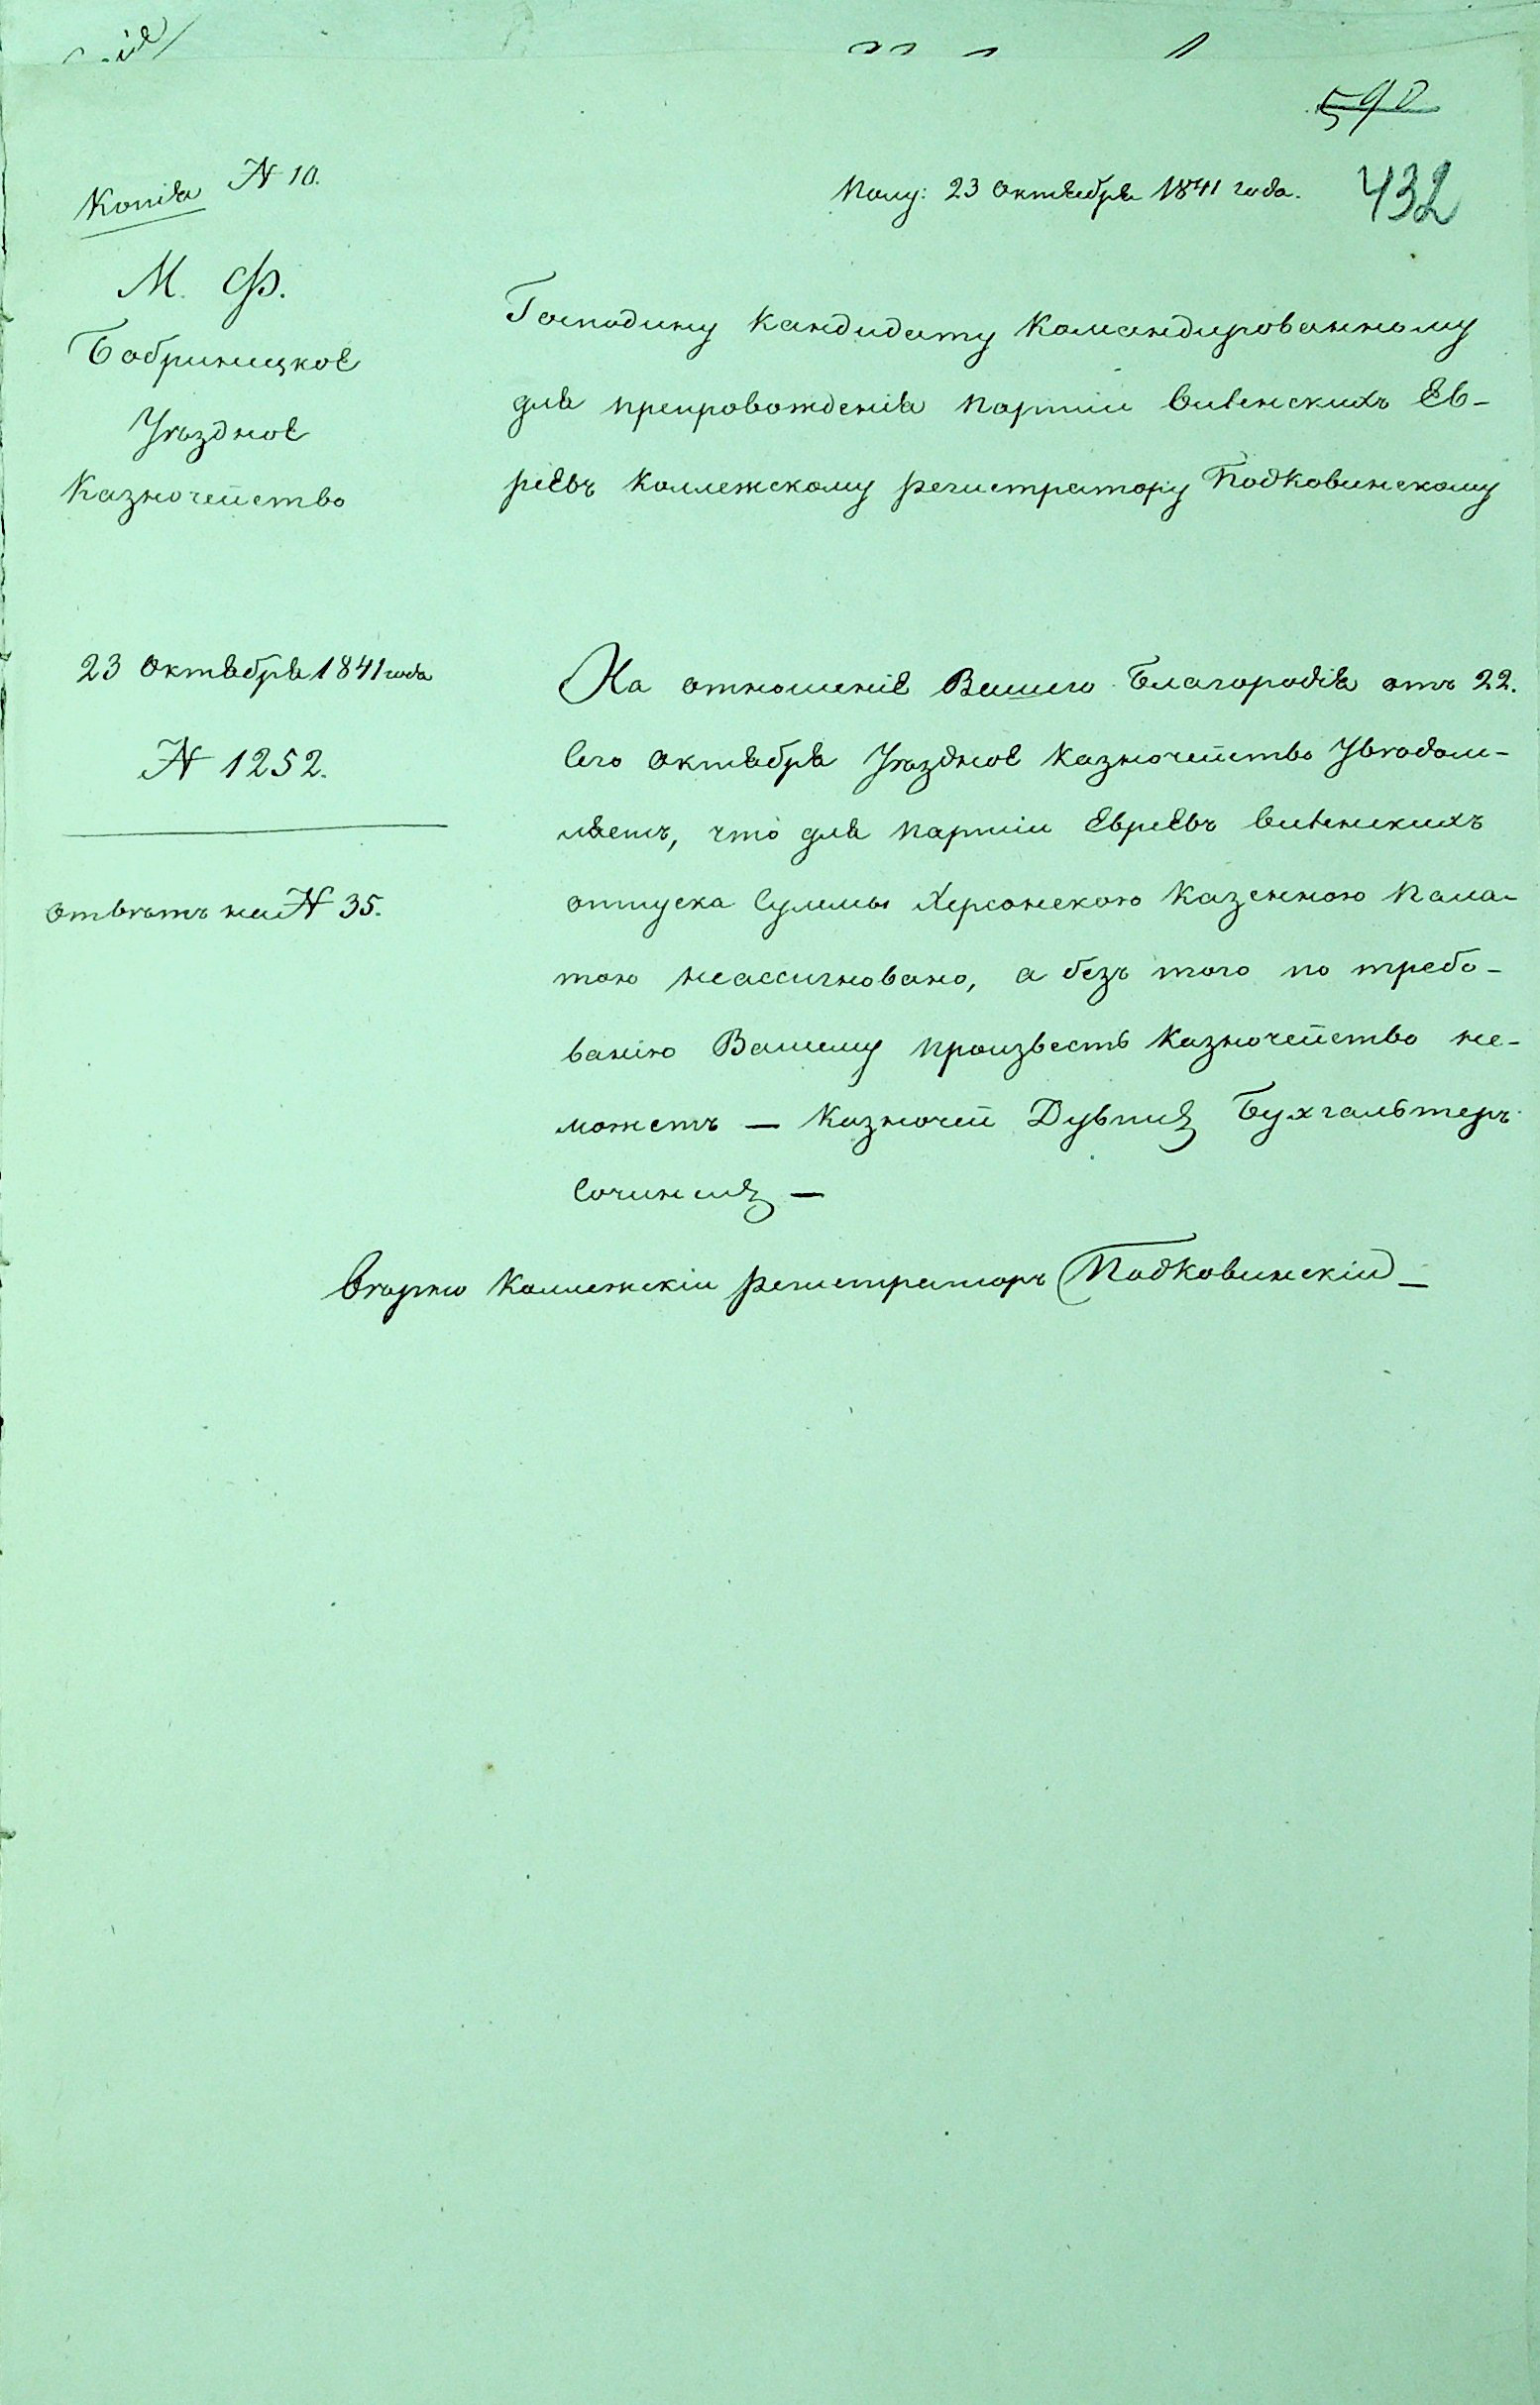 590
432
Копія N 10.
Полу: 23 Октября 1841 года.
М. Ф.
Бобринецкое
Уѣздное
Казночейство
Господину Кандидату Командированному
для препровожденія партіи Виленскихъ Ев-
реевъ Коллежскому регистратору Подковинскому
23 Октября 1841 года
N 1252.
Отвѣтъ на N 35.
На отношеніе Вашего Благородія отъ 22.
сего Октября Уѣздное Казночейство Увѣдом-
ляетъ, что для партіи Евреевъ Виленскихъ
отпуска суммы Херсонскою Казенною Пала-
тою неассигновано, а безъ того по требо-
ванію Вашему произвесть Казночейство не-
можетъ — Казночей Бухгалтеръ
—
Вѣрно Коллежскій регистраторъ Подковинскій —